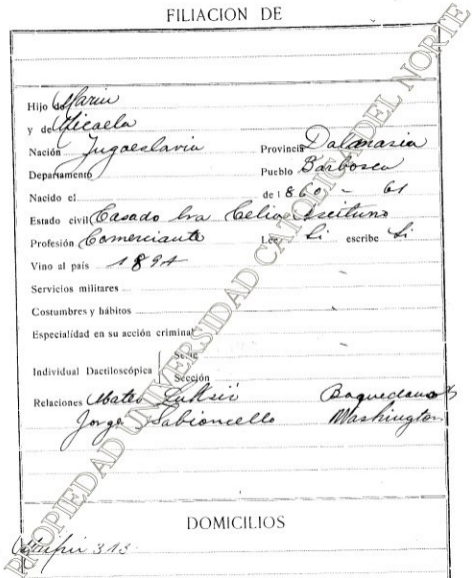 FILIACION DE
Hijo de Marin
y de Micaela
Nación Jugoeslavia Provincia Dalmasia
Departamento Pueblo
Nacido el de 1860 - 61
Estado civil Casado
Profesión Comerciante Lee Si escribe Si
Vino al país 1894
Servicios militares
Costumbres y hábitos
Especialidad en su acción criminal
Individual Dactiloscópica Serie
Sección
Relaciones Mateo Luksic Baquedano
Jorge Sabioncello Washington
DOMICILIOS
313
PROPIEDAD UNIVERSIDAD CATOLICA DEL NORTE